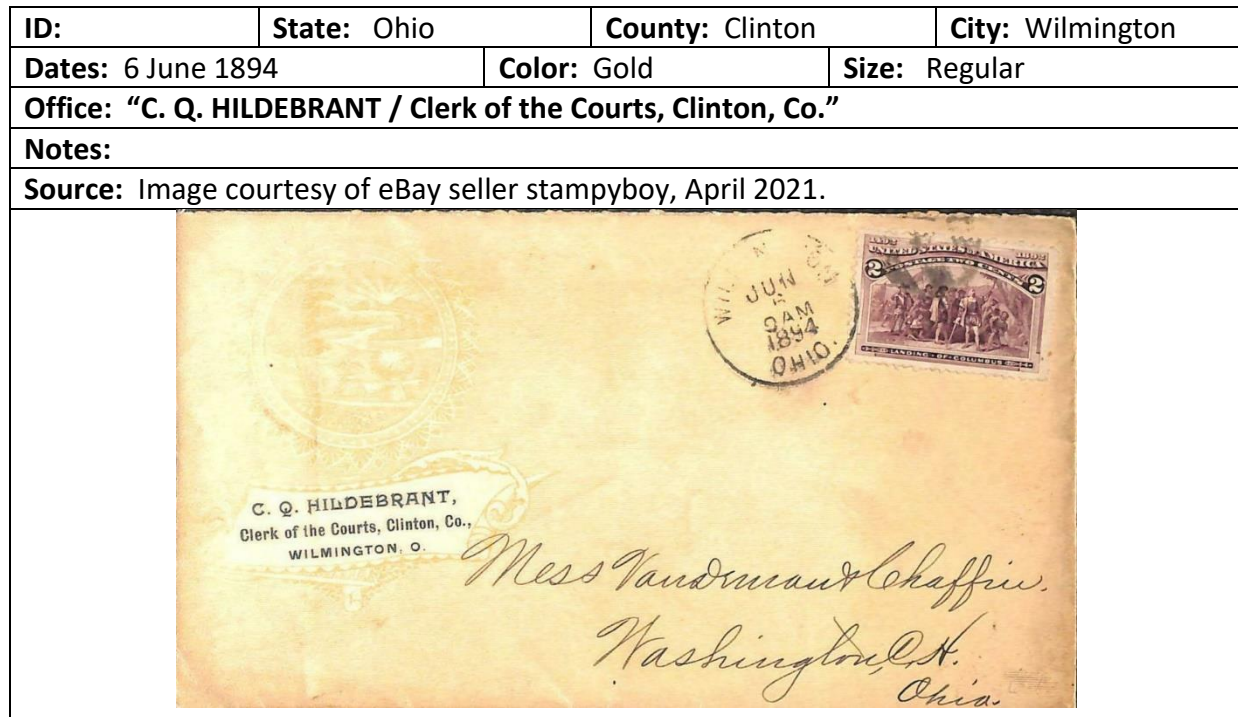 ID: State: Ohio County: Clinton City: Wilmington
Dates: 6 June 1894 Color: Gold Size: Regular
Office: “C. Q. HILDEBRANT / Clerk of the Courts, Clinton, Co.”
Notes:
Source: Image courtesy of eBay seller stampyboy, April 2021.
JUN
9AM
1894
OHIO.
1492 1892
UNITED STATES OF AMERICA
POSTAGE TWO CENTS
2 2
LANDING · OF · COLUMBUS
C. Q. HILDEBRANT,
Clerk of the Courts, Clinton, Co.,
WILMINGTON, O.
Mess Vandeman & Chaffin.
Washington, C. H.
Ohio.